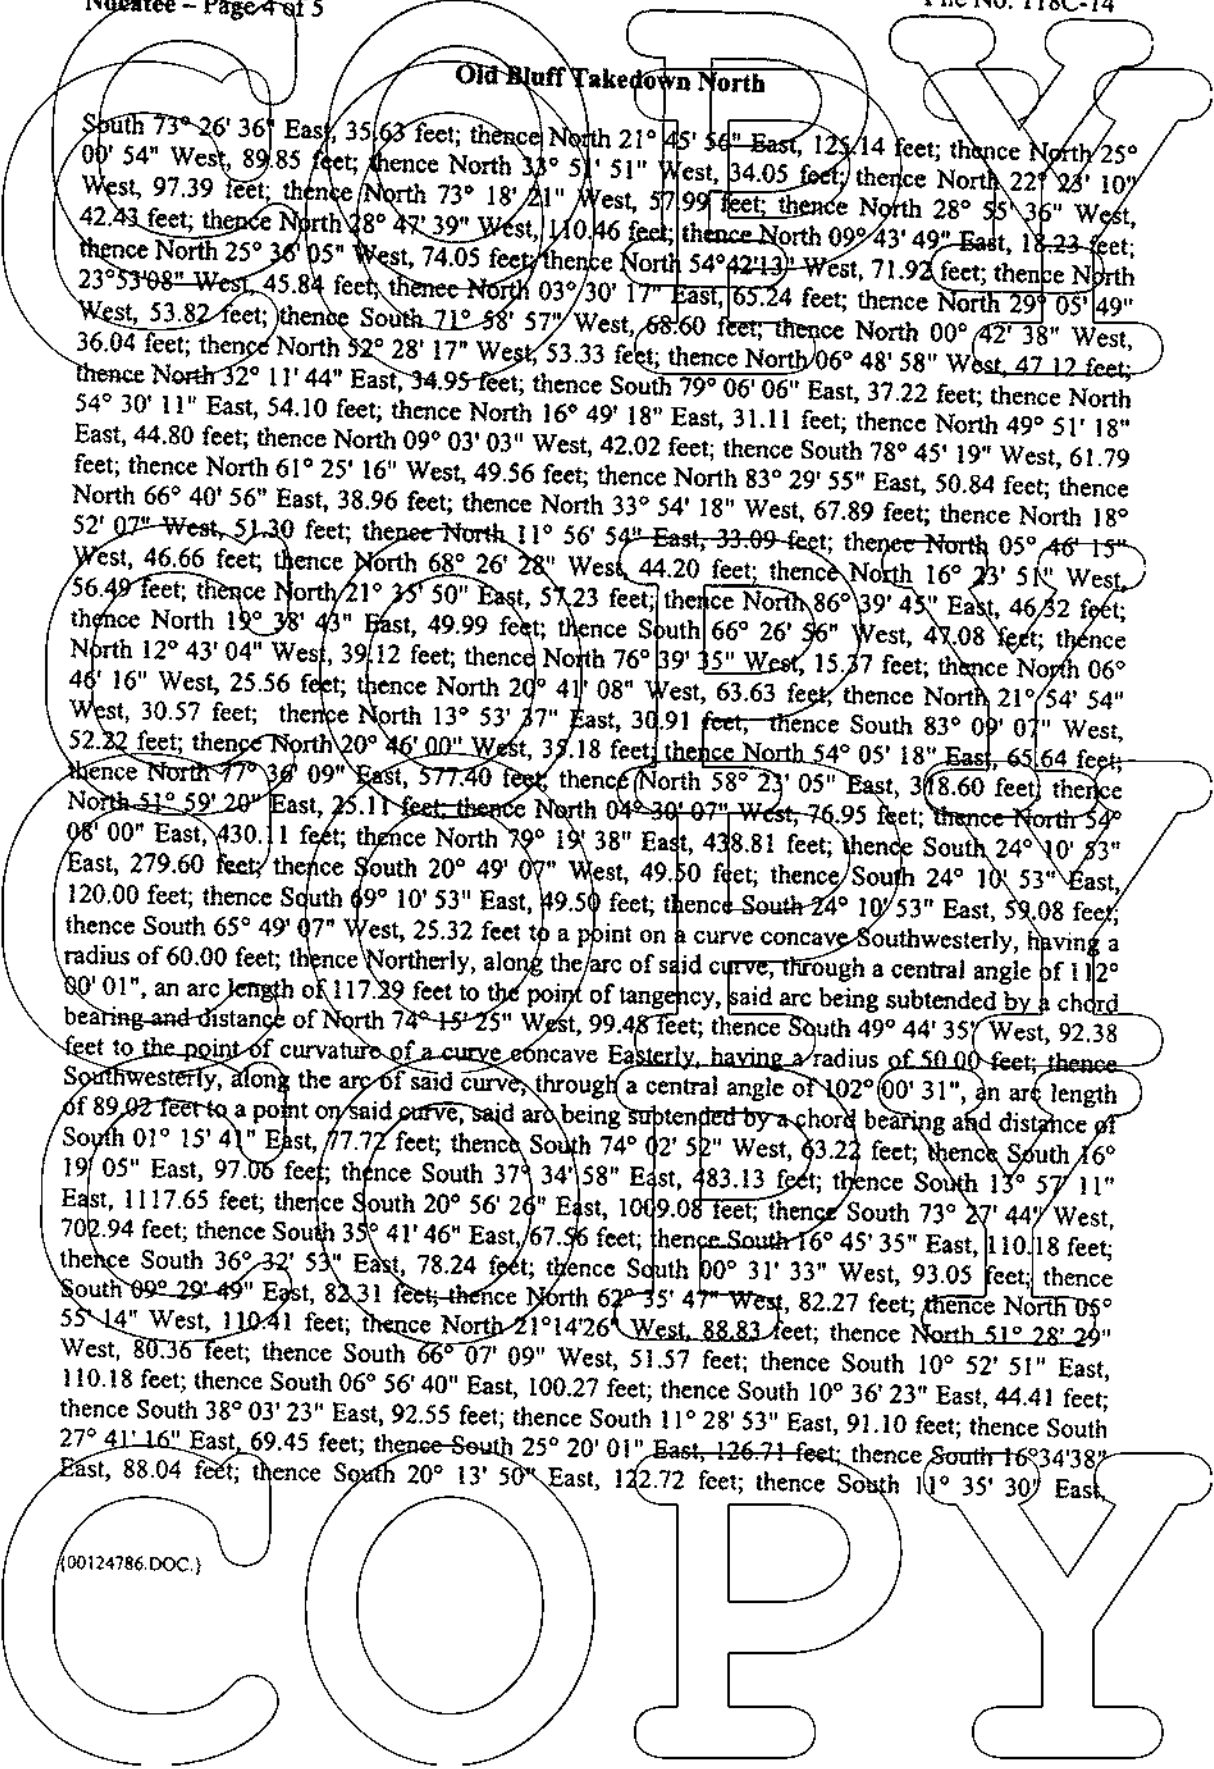 Nocatee – Page 4 of 5 File No. 118C-14
Old Bluff Takedown North
South 73° 26' 36" East, 35.63 feet; thence North 21° 45' 56" East, 125.14 feet; thence North 25°
00' 54" West, 89.85 feet; thence North 33° 51' 51" West, 34.05 feet; thence North 22° 23' 10"
West, 97.39 feet; thence North 73° 18' 21" West, 57.99 feet; thence North 28° 55' 36" West,
42.43 feet; thence North 28° 47' 39" West, 110.46 feet; thence North 09° 43' 49" East, 18.23 feet;
thence North 25° 36' 05" West, 74.05 feet; thence North 54°42'13" West, 71.92 feet; thence North
23°53'08" West, 45.84 feet; thence North 03° 30' 17" East, 65.24 feet; thence North 29° 05' 49"
West, 53.82 feet; thence South 71° 58' 57" West, 68.60 feet; thence North 00° 42' 38" West,
36.04 feet; thence North 52° 28' 17" West, 53.33 feet; thence North 06° 48' 58" West, 47 12 feet;
thence North 32° 11' 44" East, 34.95 feet; thence South 79° 06' 06" East, 37.22 feet; thence North
54° 30' 11" East, 54.10 feet; thence North 16° 49' 18" East, 31.11 feet; thence North 49° 51' 18"
East, 44.80 feet; thence North 09° 03' 03" West, 42.02 feet; thence South 78° 45' 19" West, 61.79
feet; thence North 61° 25' 16" West, 49.56 feet; thence North 83° 29' 55" East, 50.84 feet; thence
North 66° 40' 56" East, 38.96 feet; thence North 33° 54' 18" West, 67.89 feet; thence North 18°
52' 07" West, 51.30 feet; thence North 11° 56' 54" East, 33.09 feet; thence North 05° 46' 15"
West, 46.66 feet; thence North 68° 26' 28" West, 44.20 feet; thence North 16° 23' 51" West,
56.49 feet; thence North 21° 35' 50" East, 57.23 feet; thence North 86° 39' 45" East, 46.32 feet;
thence North 19° 38' 43" East, 49.99 feet; thence South 66° 26' 56" West, 47.08 feet; thence
North 12° 43' 04" West, 39.12 feet; thence North 76° 39' 35" West, 15.37 feet; thence North 06°
46' 16" West, 25.56 feet; thence North 20° 41' 08" West, 63.63 feet, thence North 21° 54' 54"
West, 30.57 feet; thence North 13° 53' 37" East, 30.91 feet; thence South 83° 09' 07" West,
52.22 feet; thence North 20° 46' 00" West, 35.18 feet; thence North 54° 05' 18" East, 65.64 feet;
thence North 77° 36' 09" East, 577.40 feet; thence North 58° 23' 05" East, 318.60 feet; thence
North 51° 59' 20" East, 25.11 feet; thence North 04° 30' 07" West, 76.95 feet; thence North 54°
08' 00" East, 430.11 feet; thence North 79° 19' 38" East, 438.81 feet; thence South 24° 10' 53"
East, 279.60 feet; thence South 20° 49' 07" West, 49.50 feet; thence South 24° 10' 53" East,
120.00 feet; thence South 69° 10' 53" East, 49.50 feet; thence South 24° 10' 53" East, 59.08 feet;
thence South 65° 49' 07" West, 25.32 feet to a point on a curve concave Southwesterly, having a
radius of 60.00 feet; thence Northerly, along the arc of said curve, through a central angle of 112°
00' 01", an arc length of 117.29 feet to the point of tangency, said arc being subtended by a chord
bearing and distance of North 74° 15' 25" West, 99.48 feet; thence South 49° 44' 35" West, 92.38
feet to the point of curvature of a curve concave Easterly, having a radius of 50.00 feet; thence
Southwesterly, along the arc of said curve, through a central angle of 102° 00' 31", an arc length
of 89.02 feet to a point on said curve, said arc being subtended by a chord bearing and distance of
South 01° 15' 41" East, 77.72 feet; thence South 74° 02' 52" West, 63.22 feet; thence South 16°
19' 05" East, 97.06 feet; thence South 37° 34' 58" East, 483.13 feet; thence South 13° 57' 11"
East, 1117.65 feet; thence South 20° 56' 26" East, 1009.08 feet; thence South 73° 27' 44" West,
702.94 feet; thence South 35° 41' 46" East, 67.56 feet; thence South 16° 45' 35" East, 110.18 feet;
thence South 36° 32' 53" East, 78.24 feet; thence South 00° 31' 33" West, 93.05 feet; thence
South 09° 29' 49" East, 82.31 feet; thence North 62° 35' 47" West, 82.27 feet; thence North 05°
55' 14" West, 110.41 feet; thence North 21°14'26" West, 88.83 feet; thence North 51° 28' 29"
West, 80.36 feet; thence South 66° 07' 09" West, 51.57 feet; thence South 10° 52' 51" East,
110.18 feet; thence South 06° 56' 40" East, 100.27 feet; thence South 10° 36' 23" East, 44.41 feet;
thence South 38° 03' 23" East, 92.55 feet; thence South 11° 28' 53" East, 91.10 feet; thence South
27° 41' 16" East, 69.45 feet; thence South 25° 20' 01" East, 126.71 feet; thence South 16°34'38"
East, 88.04 feet; thence South 20° 13' 50" East, 122.72 feet; thence South 11° 35' 30" East,
{00124786.DOC.}
COPY
COPY
COPY
COPY
COPY
COPY